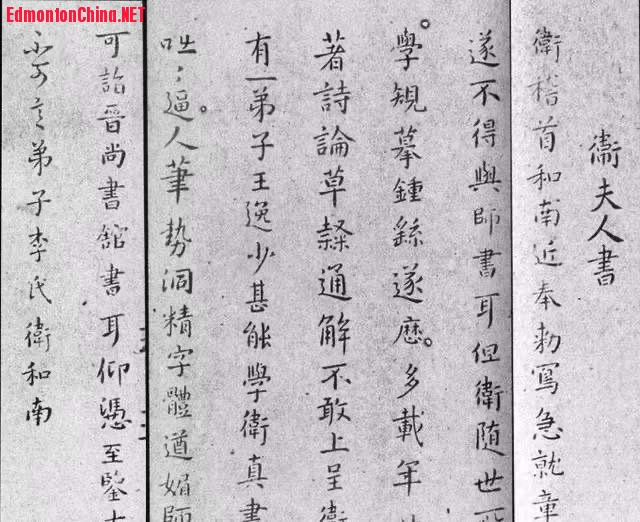 EdmontonChina.NET
衛夫人書
衛稽首和南近奉勑寫急就章
遂不得與師書耳但衛隨世所
學規摹鍾繇遂歷多載年
著詩論草隸通解不敢上呈衛
有一弟子王逸少甚能學衛真書
咄〻逼人筆勢洞精字體遒媚師
可詣晉尚書舘書耳仰憑至鑒大
不可言弟子李氏衛和南